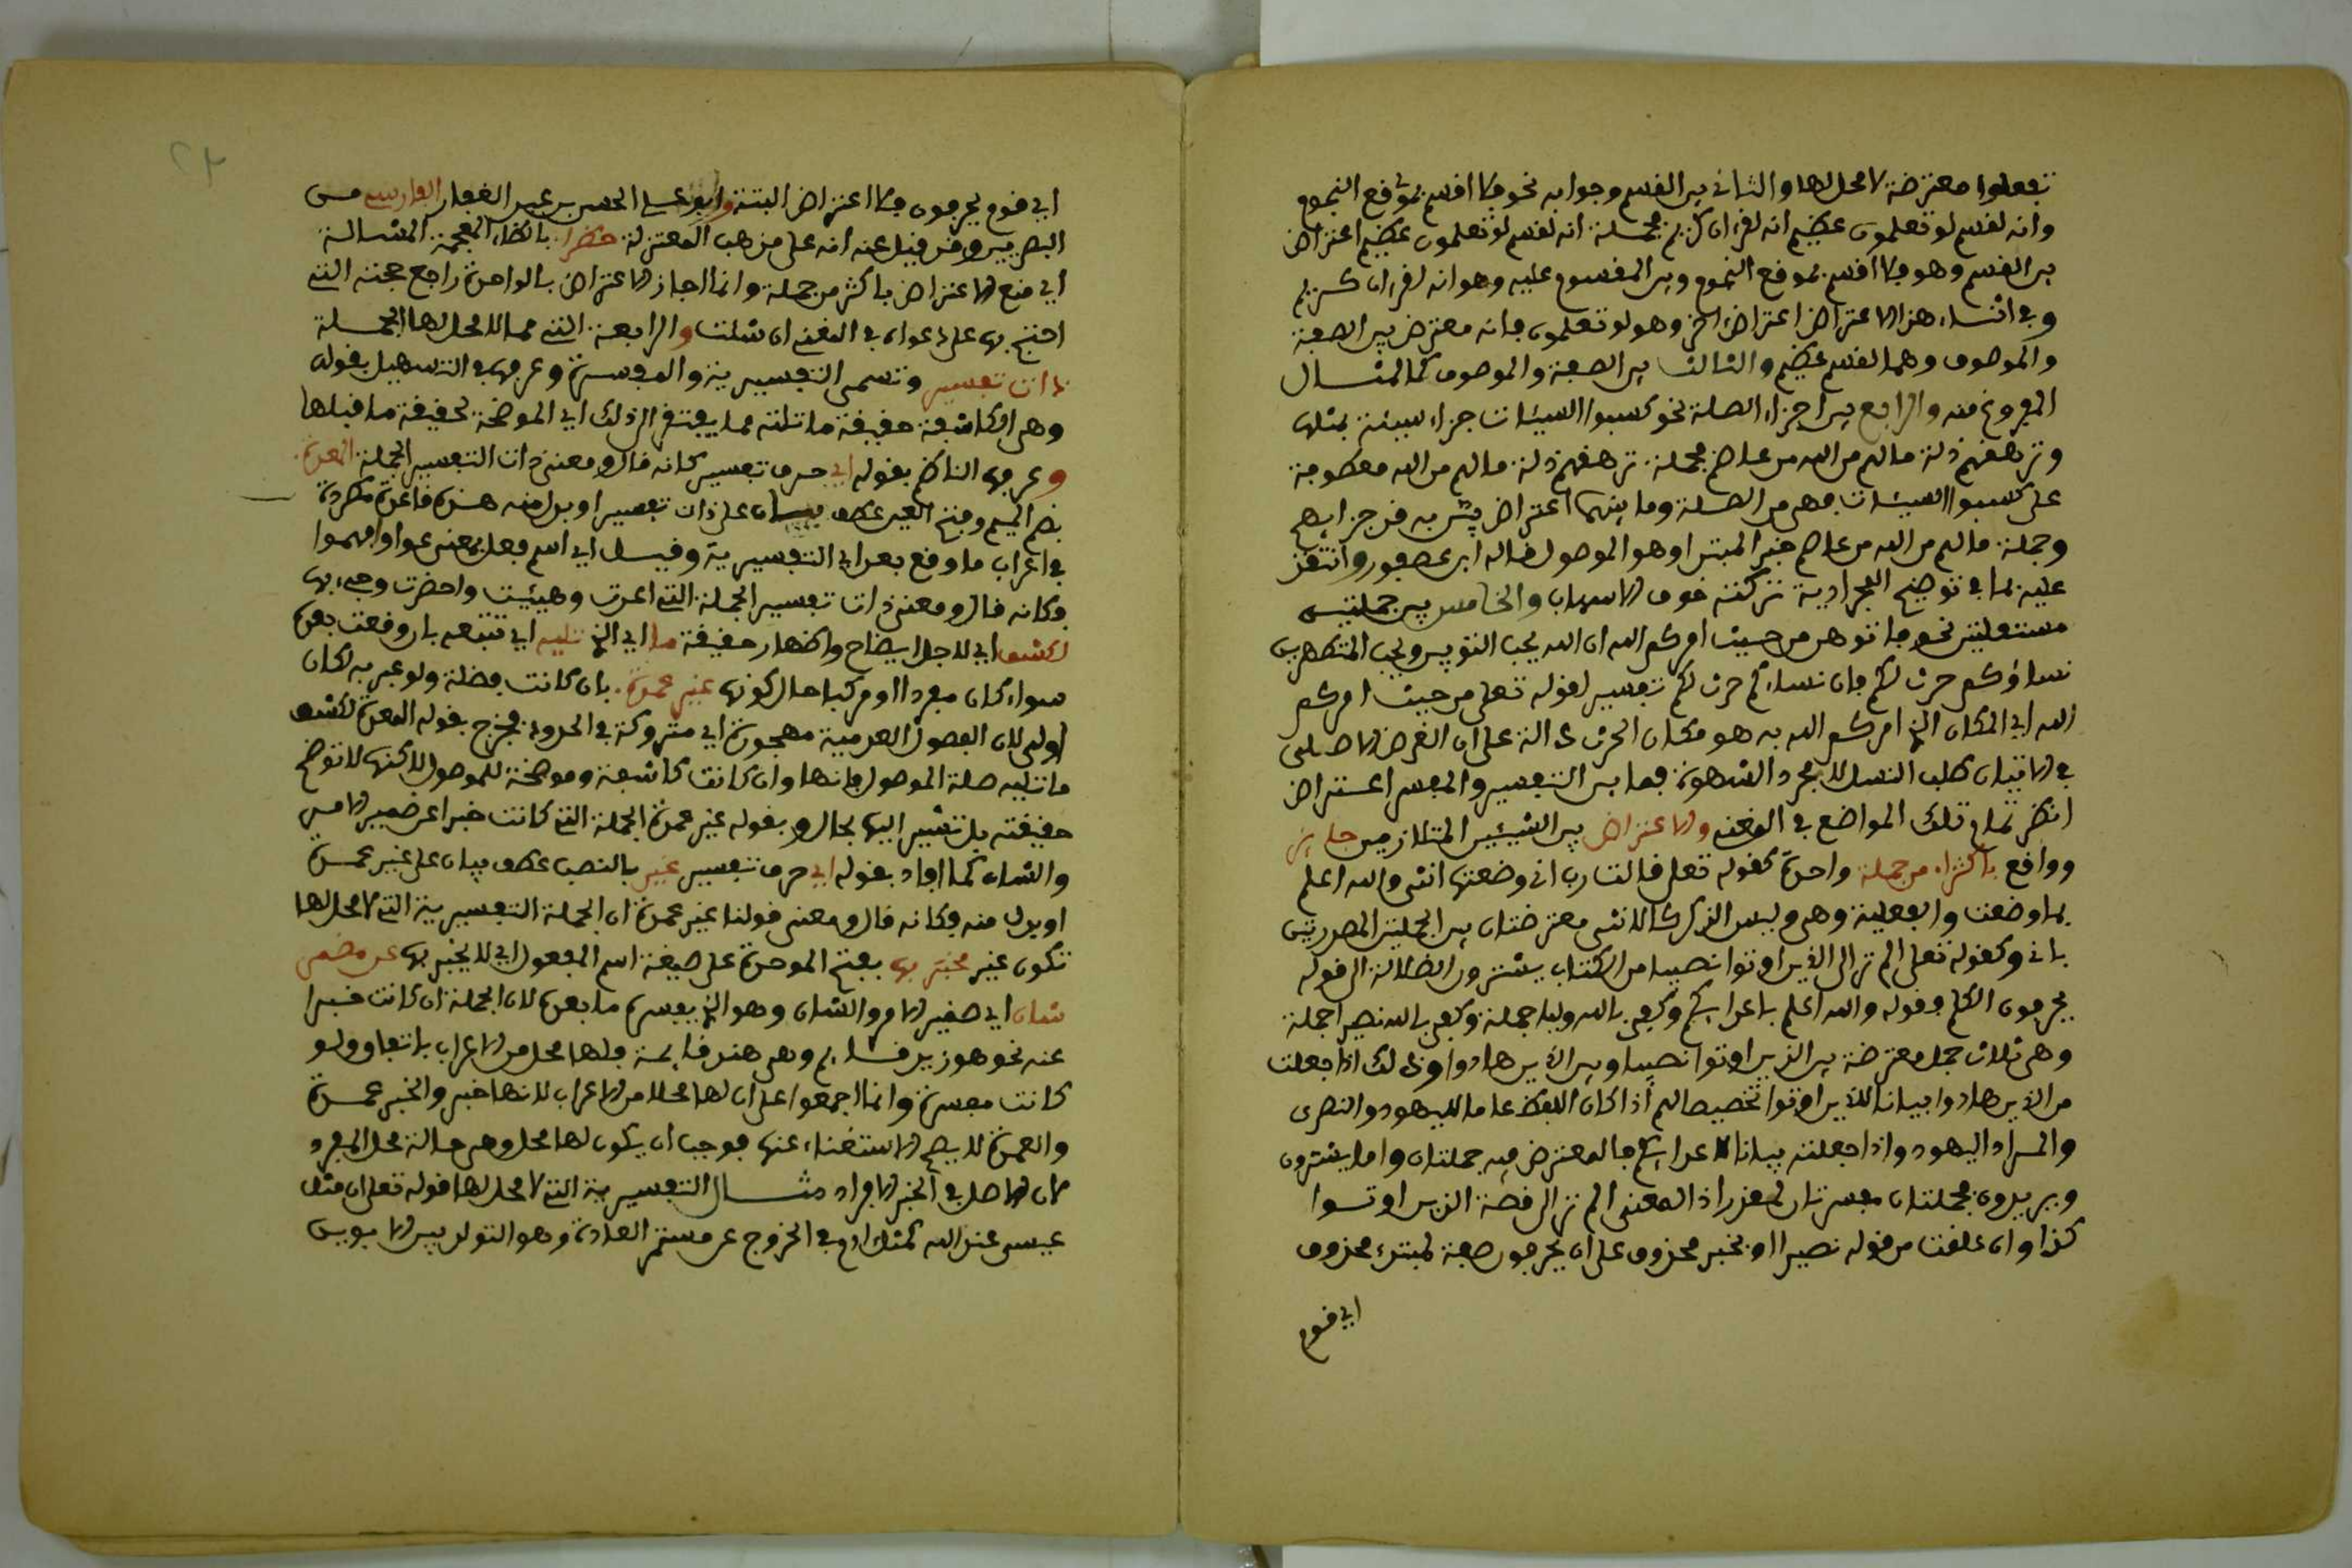 تفعلوا معترضة لا محل لها والثاني بين القسم وجوابه نحو فلا اقسم بموقع النجوم
وانه لقسم لو تعلمون عظيم انه لقرءان كريم فجملة انه لقسم لو تعلمون عظيم اعتراض
بين القسم وهو فلا اقسم بموقع النجوم وبين المقسوم عليه وهو انه لقرءان كريم
وفي اثناء هذا الاعتراض اعتراض اخر وهو لو تعلمون فانه معترض بين الصفة
والموصوف وهما لقسم عظيم والثالث بين الصفة والموصوف كالمثال
المفروغ منه والرابع بين اجزاء الصلة نحو كسبوا السيئات جزاء سيئة بمثلها
وترهقهم ذلة ما لهم من الله من عاصم فجملة ترهقهم ذلة ما لهم من الله معطوفة
على كسبوا السيئات فهي من الصلة وما بينهما اعتراض يبين به قدر جزايهم
وجملة ما لهم من الله من عاصم خبر المبتدا وهو الموصول قاله ابن عصفور وانتقد
عليه بما في توضيح المجرادية تركته خوف الاسهاب والخامس بين جملتين
مستقلتين نحو فاتوهن من حيث امركم الله ان الله يحب التوبين ويحب المتطهرين
نساؤكم حرث لكم فان نساءكم حرث لكم تفسير لقوله تعلى من حيث امركم
الله اي المكان الذي امركم الله به هو مكان الحرث دالة على ان الغرض الاصلي
في الاتيان طلب النسل لا مجرد الشهوة فما بين التفسير والمفسر اعتراض
انظر تمام تلك المواضع في المغني والاعتراض بين الشيئين المتلازمين جايز
وواقع باكثر من جملة واحدة كقوله تعلى قالت رب اني وضعتها انثى والله اعلم
بما وضعت والفعلية وهي وليس الذكر كالانثى معترضتان بين الجملتين المصدرتين
باني وكقوله تعلى الم تر الى الذين اوتوا نصيبا من الكتاب يشترون الضلالة الى قوله
يحرفون الكلم فقوله والله اعلم باعدايكم وكفى بالله وليا جملة وكفى بالله نصيرا جملة
وهي ثلاث جمل معترضة بين الذين اوتوا نصيبا وبين الذين هادوا وذلك اذا جعلت
من الذين هادوا بيانا للذين اوتوا تخصيصا لهم اذا كان اللفظ عاما لليهود والنصرى
والمراد اليهود واذا جعلته بيانا لاعدايكم فالمعترض فيه جملتان واما يشترون
ويريدون فجملتان مفسرتان لمقدر اذ المعنى الم تر الى قصة الذين اوتوا
كذا وان علقت من قوله نصيرا او بخبر محذوف على ان يحرفون صفة لمبتدء محذوف
اي قوم
اي قوم يحرفون فلا اعتراض البتة وابو علي الحسن بن عبد الغفار الفارسي من
البصريين وقد قيل عنه انه على مذهب المعتزلة حظرا بالظاء المعجمة المشالة
اي منع الاعتراض باكثر من جملة وانما اجاز الاعتراض بالواحدة راجع حجته التي
احتج بها على دعواه في المغني ان شئت والرابعة التي مما لا محل لها الجملة
ذات تفسير وتسمى التفسيرية والمفسرة وعرفها في التسهيل بقوله
وهي الكاشفة حقيقة ما تلته مما يفتقر الى ذلك اي الموضحة لحقيقة ما قبلها
وعرفها الناظم بقوله اي حرف تفسير كانه قال ومعنى ذات التفسير الجملة المعدة
بضم الميم وفتح العين عطف بيان على ذات تفسير او بدل منه هذه قاعدة مطردة
في اعراب ما وقع بعد اي التفسيرية وقيل اي اسم فعل بمعنى عوا وافهموا
وكانه قال ومعنى ذات تفسير الجملة التي اعدت وهيئت واحضرت وجيء بها
لكشف اي لاجل ايضاح واظهار حقيقة ما اي الذي تليه اي تتبعه بان وقعت بعده
سواء كان مفردا او مركبا حال كونها غير عمدة بان كانت فضلة ولو عبر به لكان
اولى لان الفصول العدمية مهجورة اي متروكة في الحدود فخرج بقوله المعدة لكشف
ما تليه صلة الموصول فانها وان كانت كاشفة وموضحة للموصول لاكنها لا توضح
حقيقته بل تشير اليها بحال وبقوله غير عمدة الجملة التي كانت خبرا عن ضمير الامر
والشان كما افاد بقوله اي حرف تفسير غير بالنصب عطف بيان على غير عمدة
او بدل منه فكانه قال ومعنى قولنا غير عمدة ان الجملة التفسيرية التي لا محل لها
تكون غير مخبر بها بفتح الموحدة على صيغة اسم المفعول اي لا يخبر بها عن مضمر
شان اي ضمير الامر والشان وهو الذي يفسره ما بعده لان الجملة ان كانت خبرا
عنه نحو هو زيد قايم وهي هند قايمة فلها محل من الاعراب باتفاق ولو
كانت مفسرة وانما اجمعوا على ان لها محلا من الاعراب لانها خبر والخبر عمدة
والعمدة لا يصح الاستغناء عنها فوجب ان يكون لها محل وهي حالة محل المفرد
لان الاصل في الخبر الافراد مثال التفسيرية التي لا محل لها قوله تعلى ان مثل
عيسى عند الله كمثل ادم في الخروج عن مستمر العادة وهو التولد بين الابوين